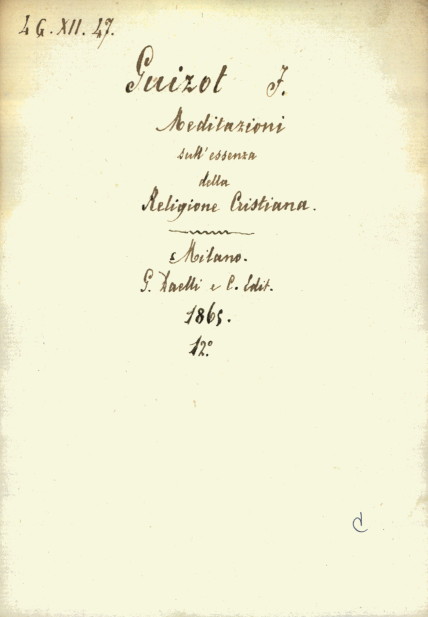 4 G. XII. 47.
Guizot F.
Meditazioni
sull' essenza
della
Religione Cristiana.
Milano.
G. Daelli e C. Edit.
1865.
12°